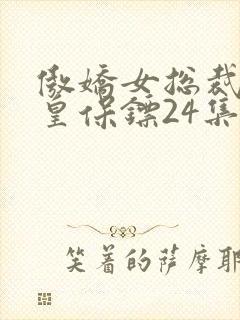 傲嬌女总裁
皇保鏢24集
笑着的萨摩耶